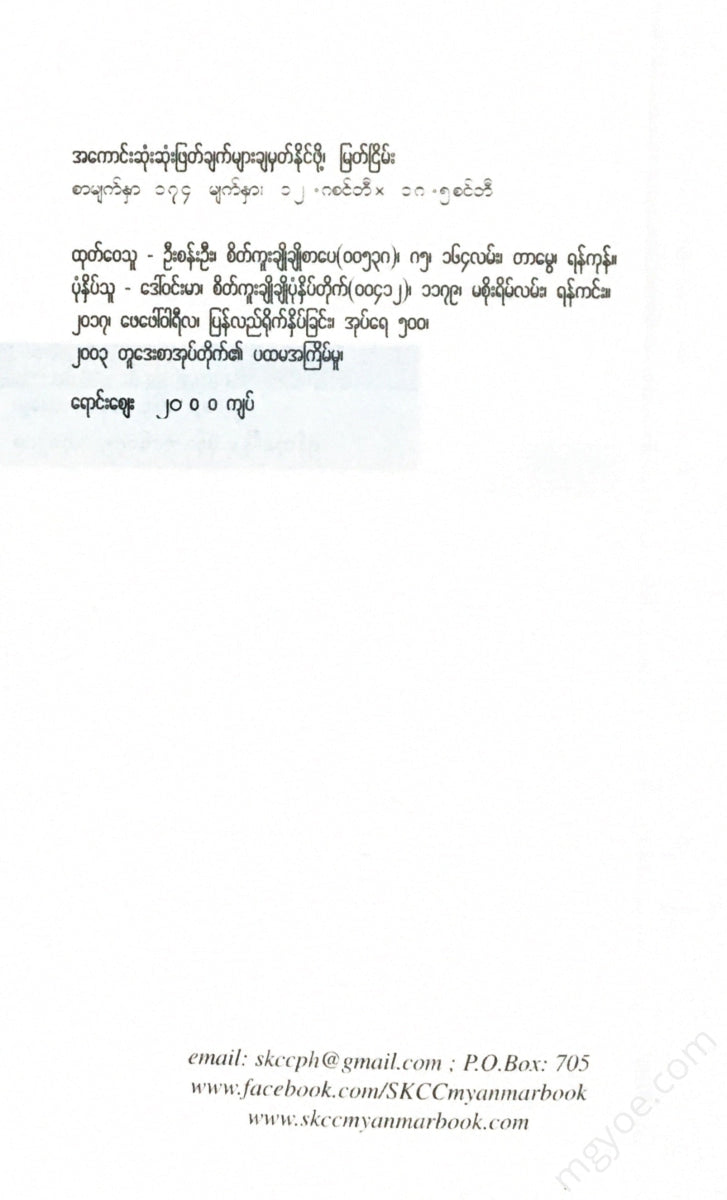 အကောင်းဆုံးဆုံးဖြတ်ချက်များချမှတ်နိုင်ဖို့၊ မြတ်ငြိမ်း
စာမျက်နှာ ၁၇၄ မျက်နှာ၊ ၁၂.၈စင်တီ× ၁၈.၅စင်တီ
ထုတ်ဝေသူ - ဦးစန်းဦး၊ စိတ်ကူးချိုချိုစာပေ(၀၀၅၃၈)၊ ၈၅၊ ၁၆၄လမ်း၊ တာမွေ၊ ရန်ကုန်။
ပုံနှိပ်သူ - ဒေါ်ဝင်းမာ၊ စိတ်ကူးချိုချိုပုံနှိပ်တိုက်(၀၀၄၁၂)၊ ၁၁၇၉၊ မစိုးရိမ်လမ်း၊ ရန်ကင်း။
၂၀၁၇၊ ဖေဖော်ဝါရီလ၊ ပြန်လည်ရိုက်နှိပ်ခြင်း၊ အုပ်ရေ ၅၀၀၊
၂၀၀၃ တူဒေးစာအုပ်တိုက်၏ ပထမအကြိမ်မူ၊
ရောင်းဈေး ၂၀၀၀ ကျပ်
email: skccph@gmail.com ; P.O.Box: 705
www.facebook.com/SKCCmyanmarbook
www.skccmyanmarbook.com
mgyoe.com